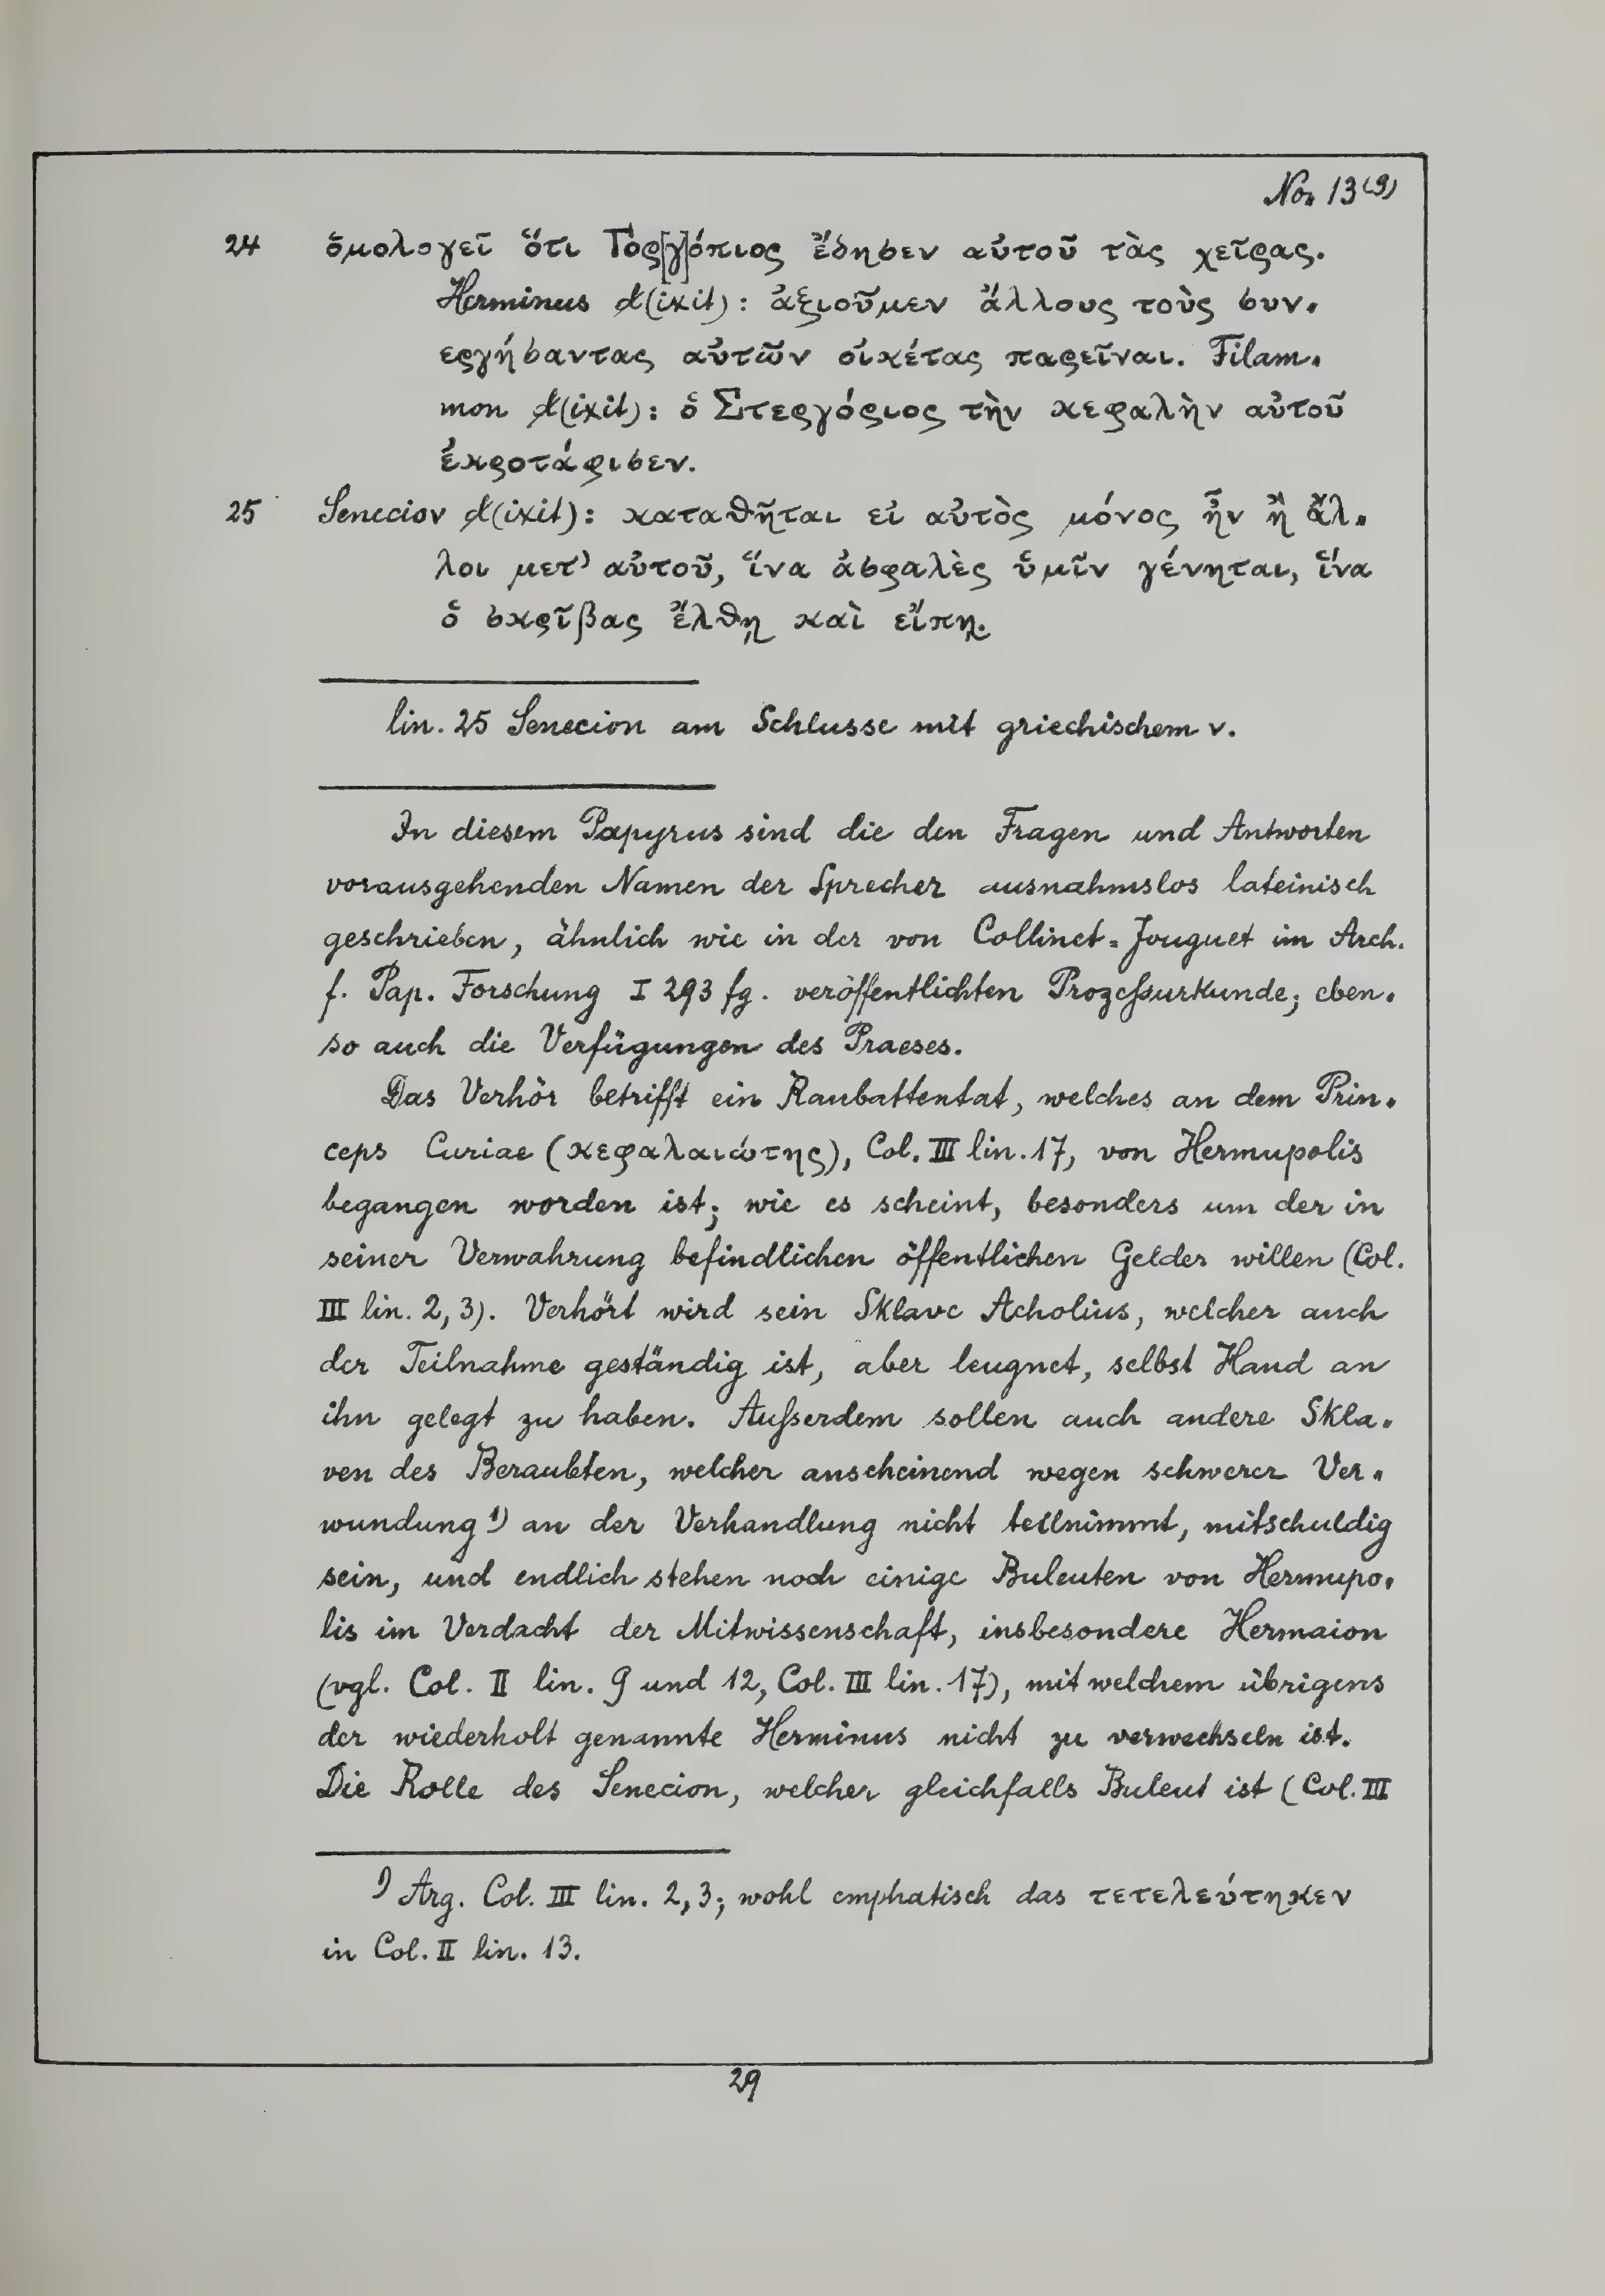 No. 13(9)
24 ὁμολογεῖ ὅτι Γορ[γ]όπιος ἔδησεν αὐτοῦ τὰς χεῖρας.
Herminus d(ixit): ἀξιοῦμεν ἄλλους τοὺς συν-
εργήσαντας αὐτῶν οἰκέτας παρεῖναι. Filam-
mon d(ixit): ὁ Στεργόριος τὴν κεφαλὴν αὐτοῦ
ἐκροτάφισεν.
25 Senecioν d(ixit): καταθῆται εἰ αὐτὸς μόνος ἦν ἢ ἄλ-
λοι μετ' αὐτοῦ, ἵνα ἀσφαλὲς ὑμῖν γένηται, ἵνα
ὁ σκρῖβας ἔλθῃ καὶ εἴπῃ.
lin. 25 Senecion am Schlusse mit griechischem ν.
In diesem Papyrus sind die den Fragen und Antworten
vorausgehenden Namen der Sprecher ausnahmslos lateinisch
geschrieben, ähnlich wie in der von Collinet-Jouguet im Arch.
f. Pap. Forschung I 293 fg. veröffentlichten Prozeßurkunde; eben-
so auch die Verfügungen des Praeses.
Das Verhör betrifft ein Raubattentat, welches an dem Prin-
ceps Curiae (κεφαλαιώτης), Col. III lin. 17, von Hermupolis
begangen worden ist; wie es scheint, besonders um der in
seiner Verwahrung befindlichen öffentlichen Gelder willen (Col.
III lin. 2, 3). Verhört wird sein Sklave Acholius, welcher auch
der Teilnahme geständig ist, aber leugnet, selbst Hand an
ihn gelegt zu haben. Außerdem sollen auch andere Skla-
ven des Beraubten, welcher anscheinend wegen schwerer Ver-
wundung 1) an der Verhandlung nicht teilnimmt, mitschuldig
sein, und endlich stehen noch einige Buleuten von Hermupo-
lis im Verdacht der Mitwissenschaft, insbesondere Hermaion
(vgl. Col. II lin. 9 und 12, Col. III lin. 17), mit welchem übrigens
der wiederholt genannte Herminus nicht zu verwechseln ist.
Die Rolle des Senecion, welcher gleichfalls Buleut ist (Col. III
1) Arg. Col. III lin. 2, 3; wohl emphatisch das τετελεύτηκεν
in Col. II lin. 13.
29